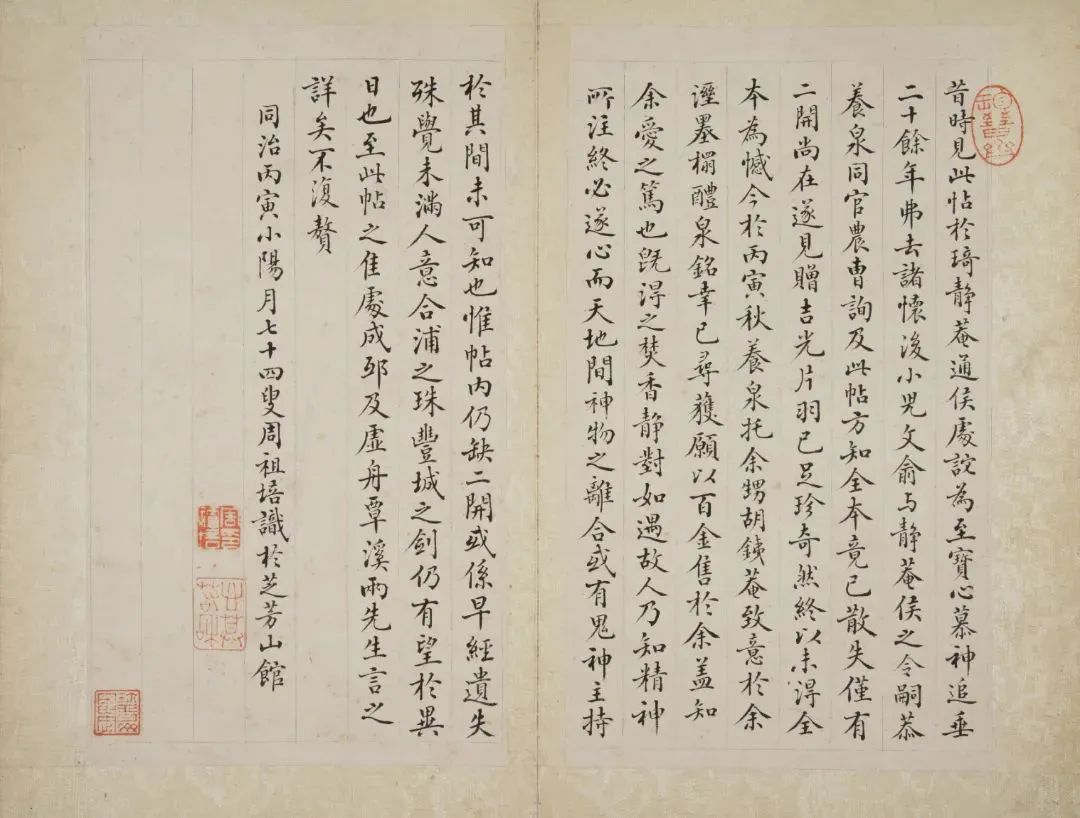 昔時見此帖於琦静菴通侯處詫為至寶心慕神追垂
二十餘年弗去諸懷後小兒文俞与静菴侯之令嗣恭
養泉同官農曹詢及此帖方知全本竟已散失僅有
二開尚在遂見贈吉光片羽已足珍奇然終以未得全
本為憾今於丙寅秋養泉托余甥胡銕菴致意於余
瀣墨榻醴泉銘幸已尋獲願以百金售於余盖知
余愛之篤也既得之焚香静對如遇故人乃知精神
所注終必遂心而天地間神物之離合或有鬼神主持
於其間未可知也惟帖内仍缺二開或係早經遺失
殊覺未滿人意合浦之珠豐城之剑仍有望於異
日也至此帖之佳處成邸及虚舟覃溪兩先生言之
詳矣不復贅
同治丙寅小陽月七十四叟周祖培識於芝芳山館